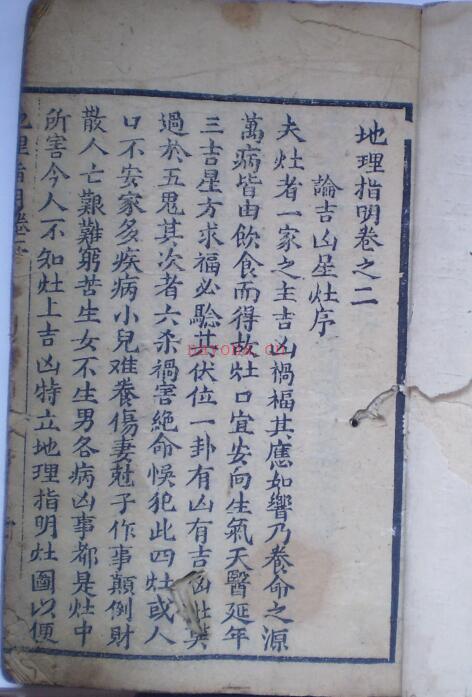 地理指明卷之二
論吉凶星灶序
夫灶者一家之主吉凶禍福其應如響乃養命之源
萬病皆由飲食而得故灶口宜安向生氣天醫延年
三吉星方求福必驗其伏位一卦有凶有吉凶灶莫
過於五鬼其次者六杀禍害絕命悞犯此四灶或人
口不安家多疾病小兒难養傷妻尅子作事顛倒財
散人亡艱難窮苦生女不生男各病凶事都是灶中
所害今人不知灶上吉凶特立地理指明灶圖以便
地理指明卷